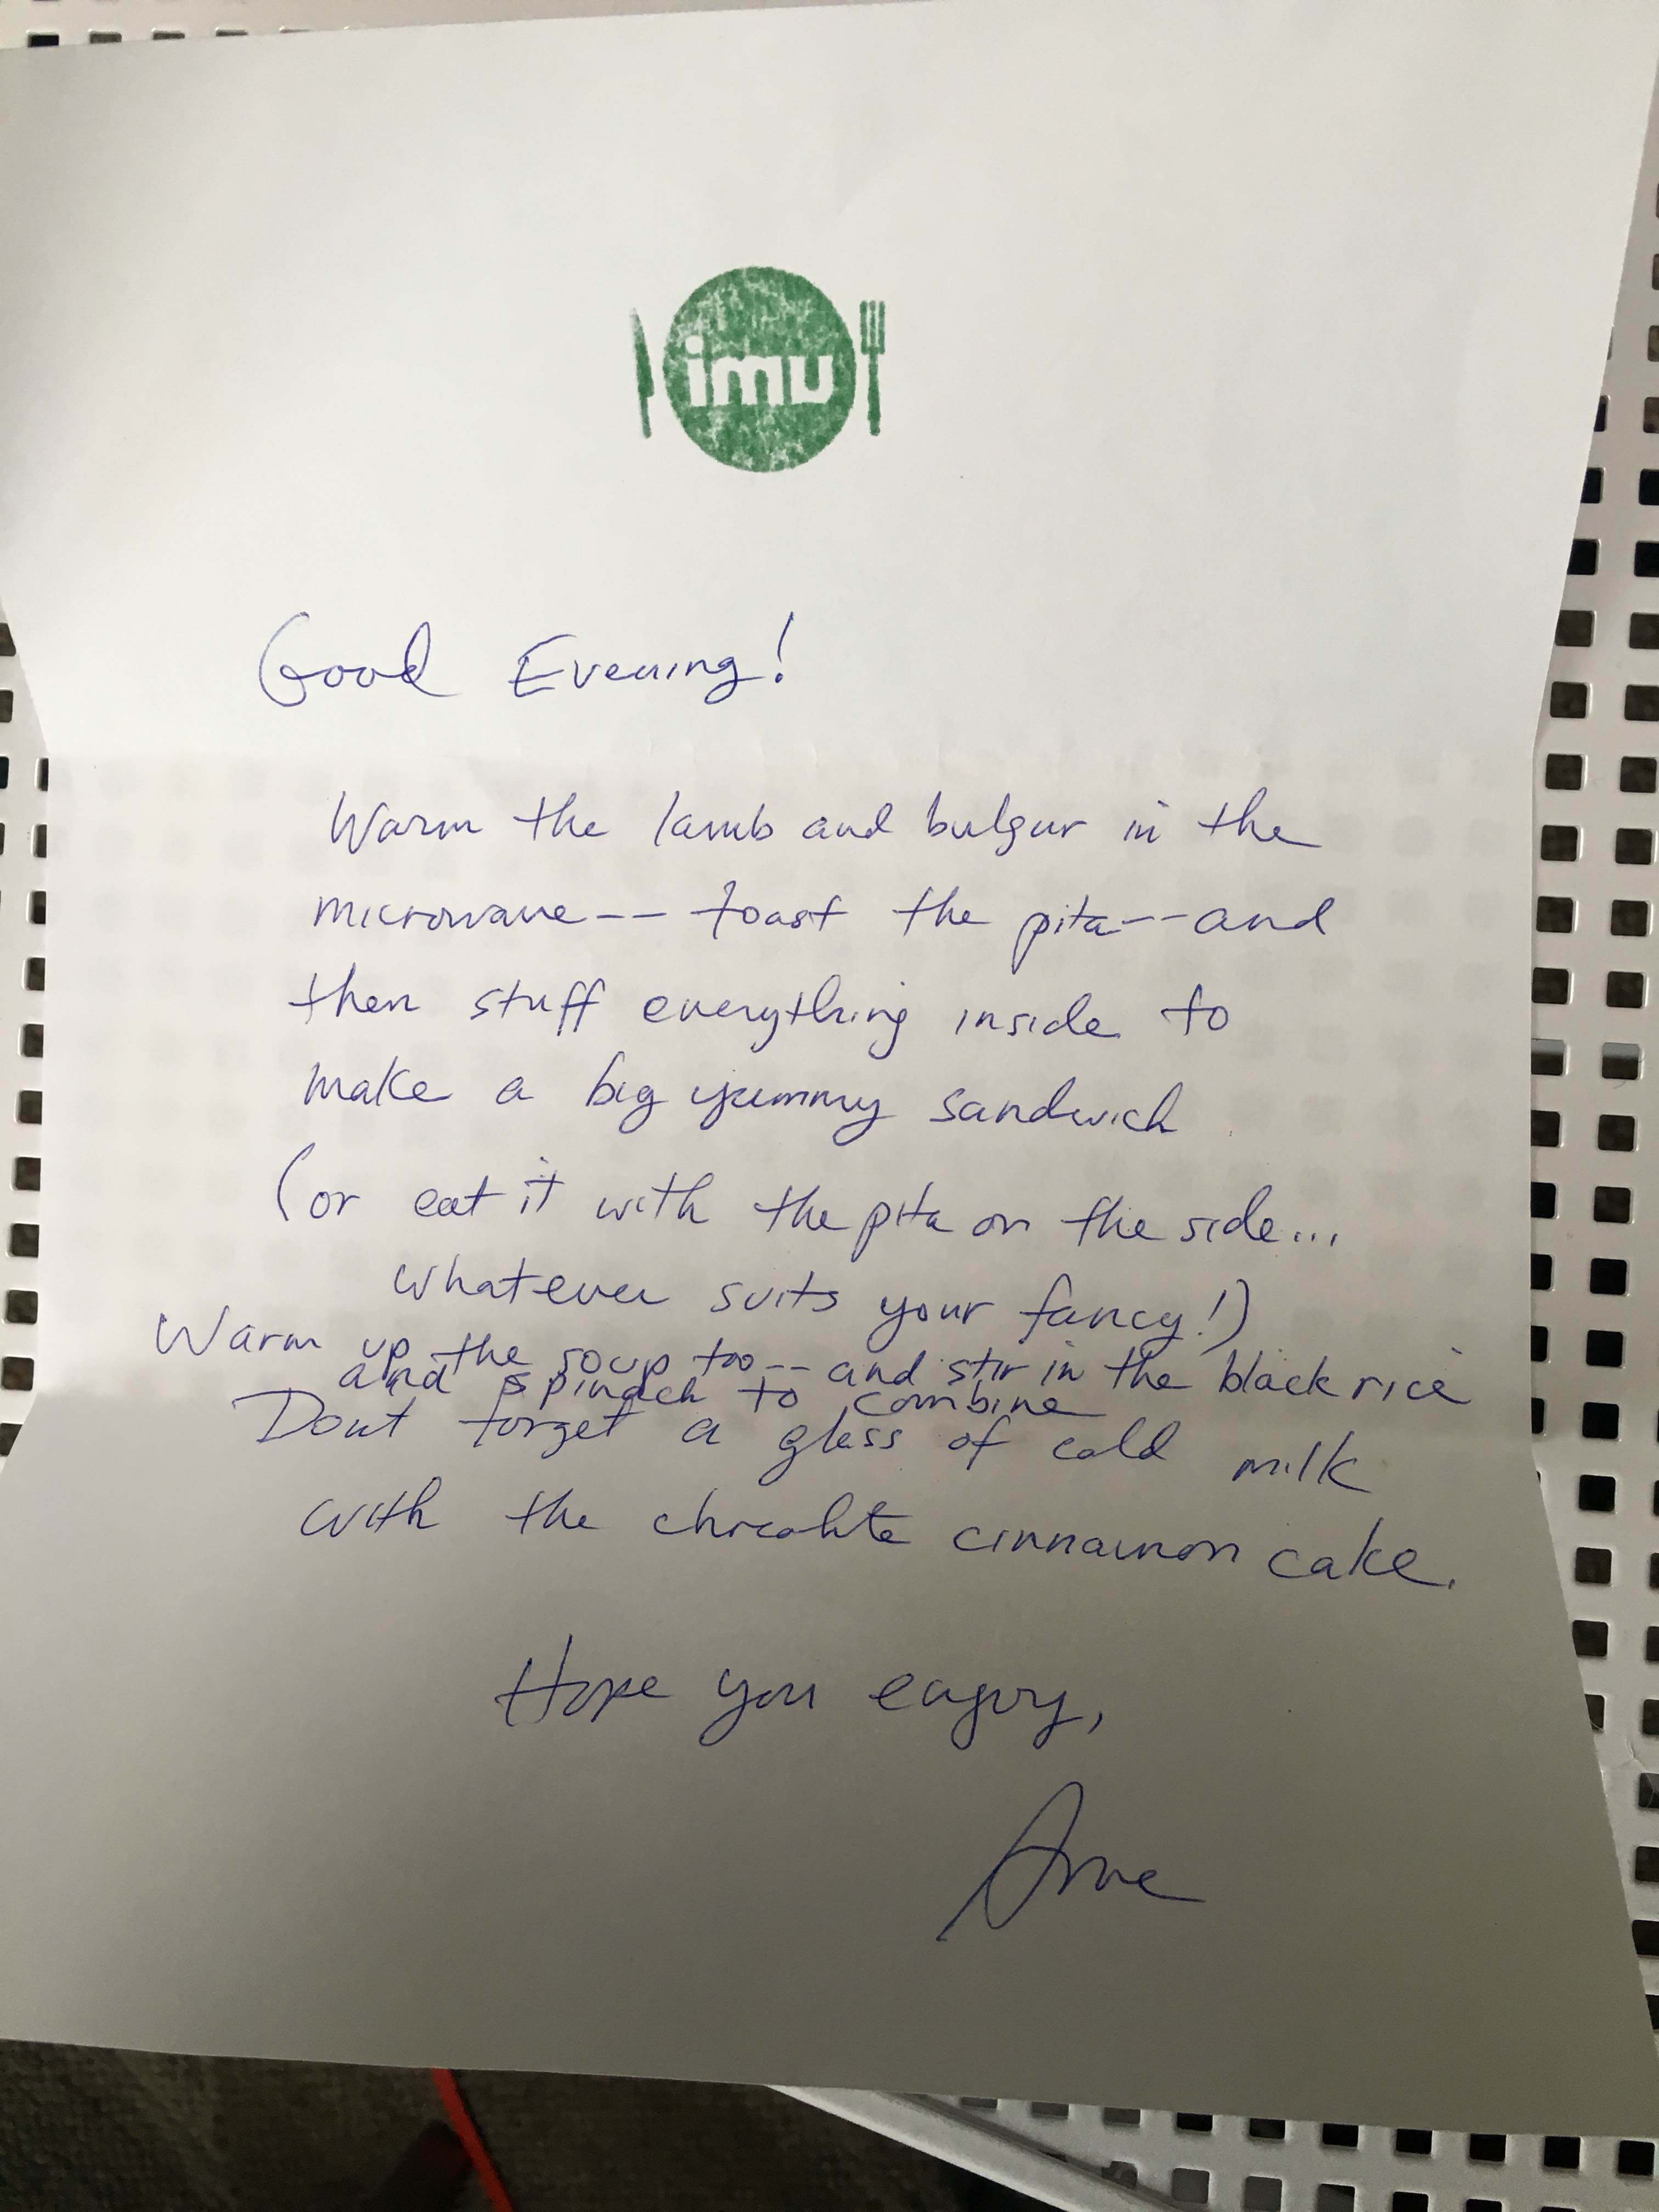 imu
Good Evening!
Warm the lamb and bulgur in the
microwave -- toast the pita -- and
then stuff everything inside to
make a big yummy sandwich
(or eat it with the pita on the side...
whatever suits your fancy!)
Warm up the soup too -- and stir in the black rice
and spinach to combine
Dont forget a glass of cold milk
with the chocolate cinnamon cake.
Hope you enjoy,